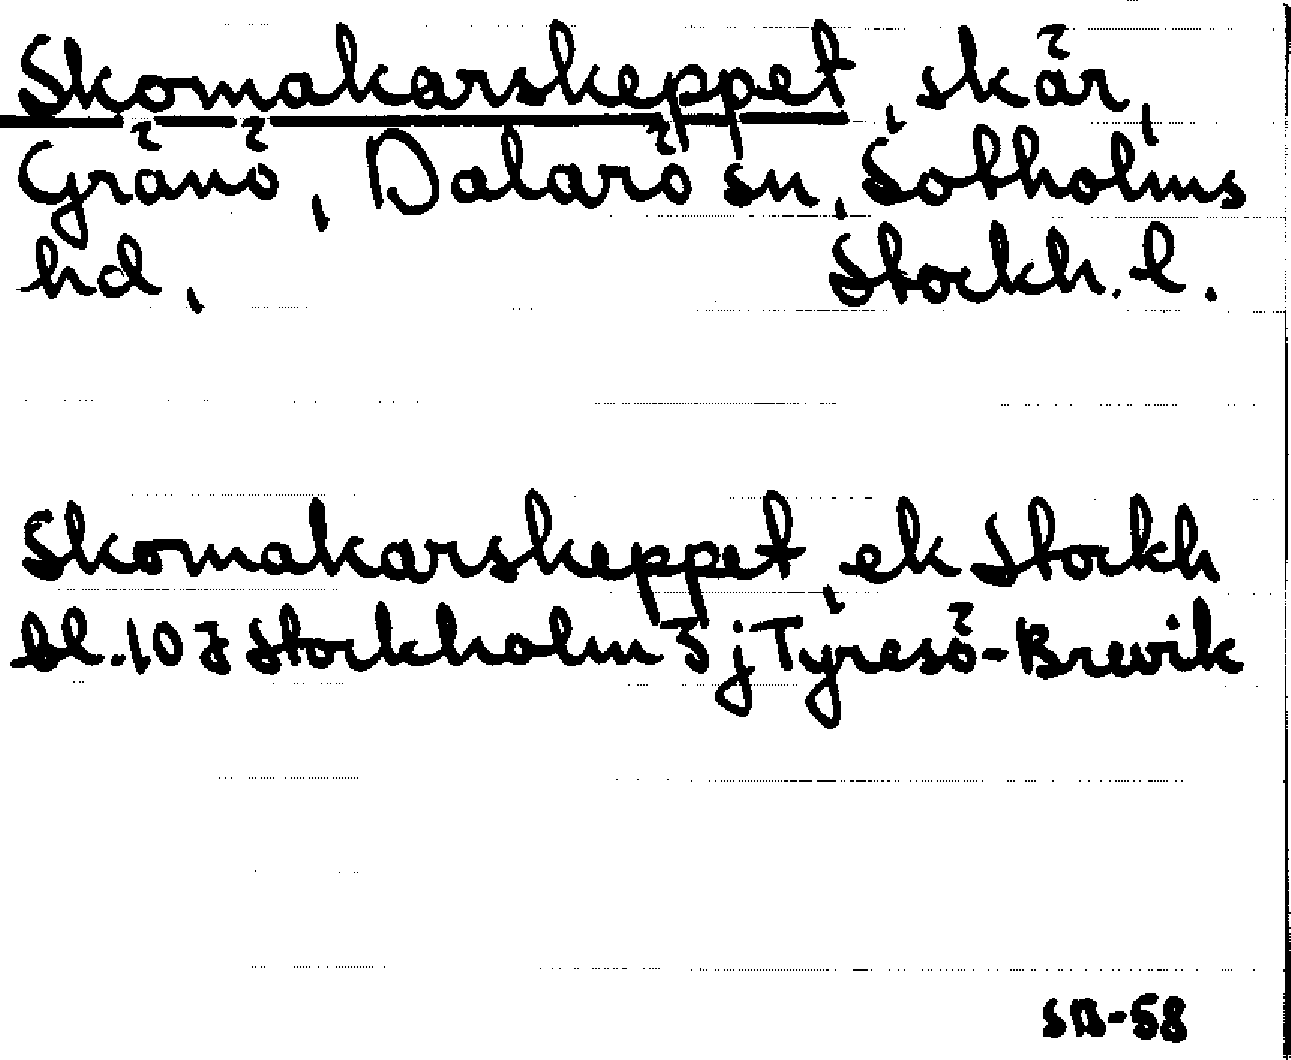 Skomakarskeppet, skär,
Gränö, Dalarö sn, Sotholms
hd, Stockh. l.
Skomakarskeppet, ek Stockh
bl. 10 J Stockholm 3 j Tyresö-Brevik
SB-58